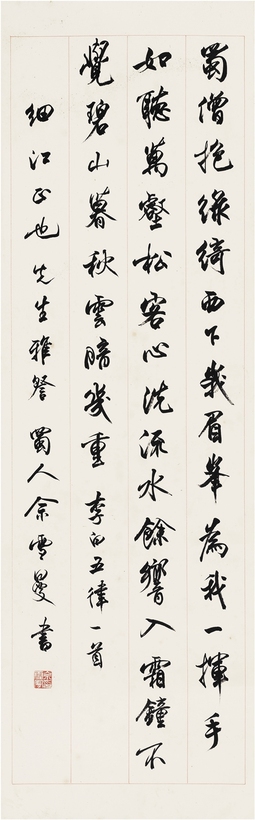 蜀僧抱綠綺西下峨眉峯為我一揮手
如聽萬壑松客心洗流水餘響入霜鐘不
覺碧山暮秋雲暗幾重 李白五律一首
細江正也先生雅督 蜀人余雪曼書